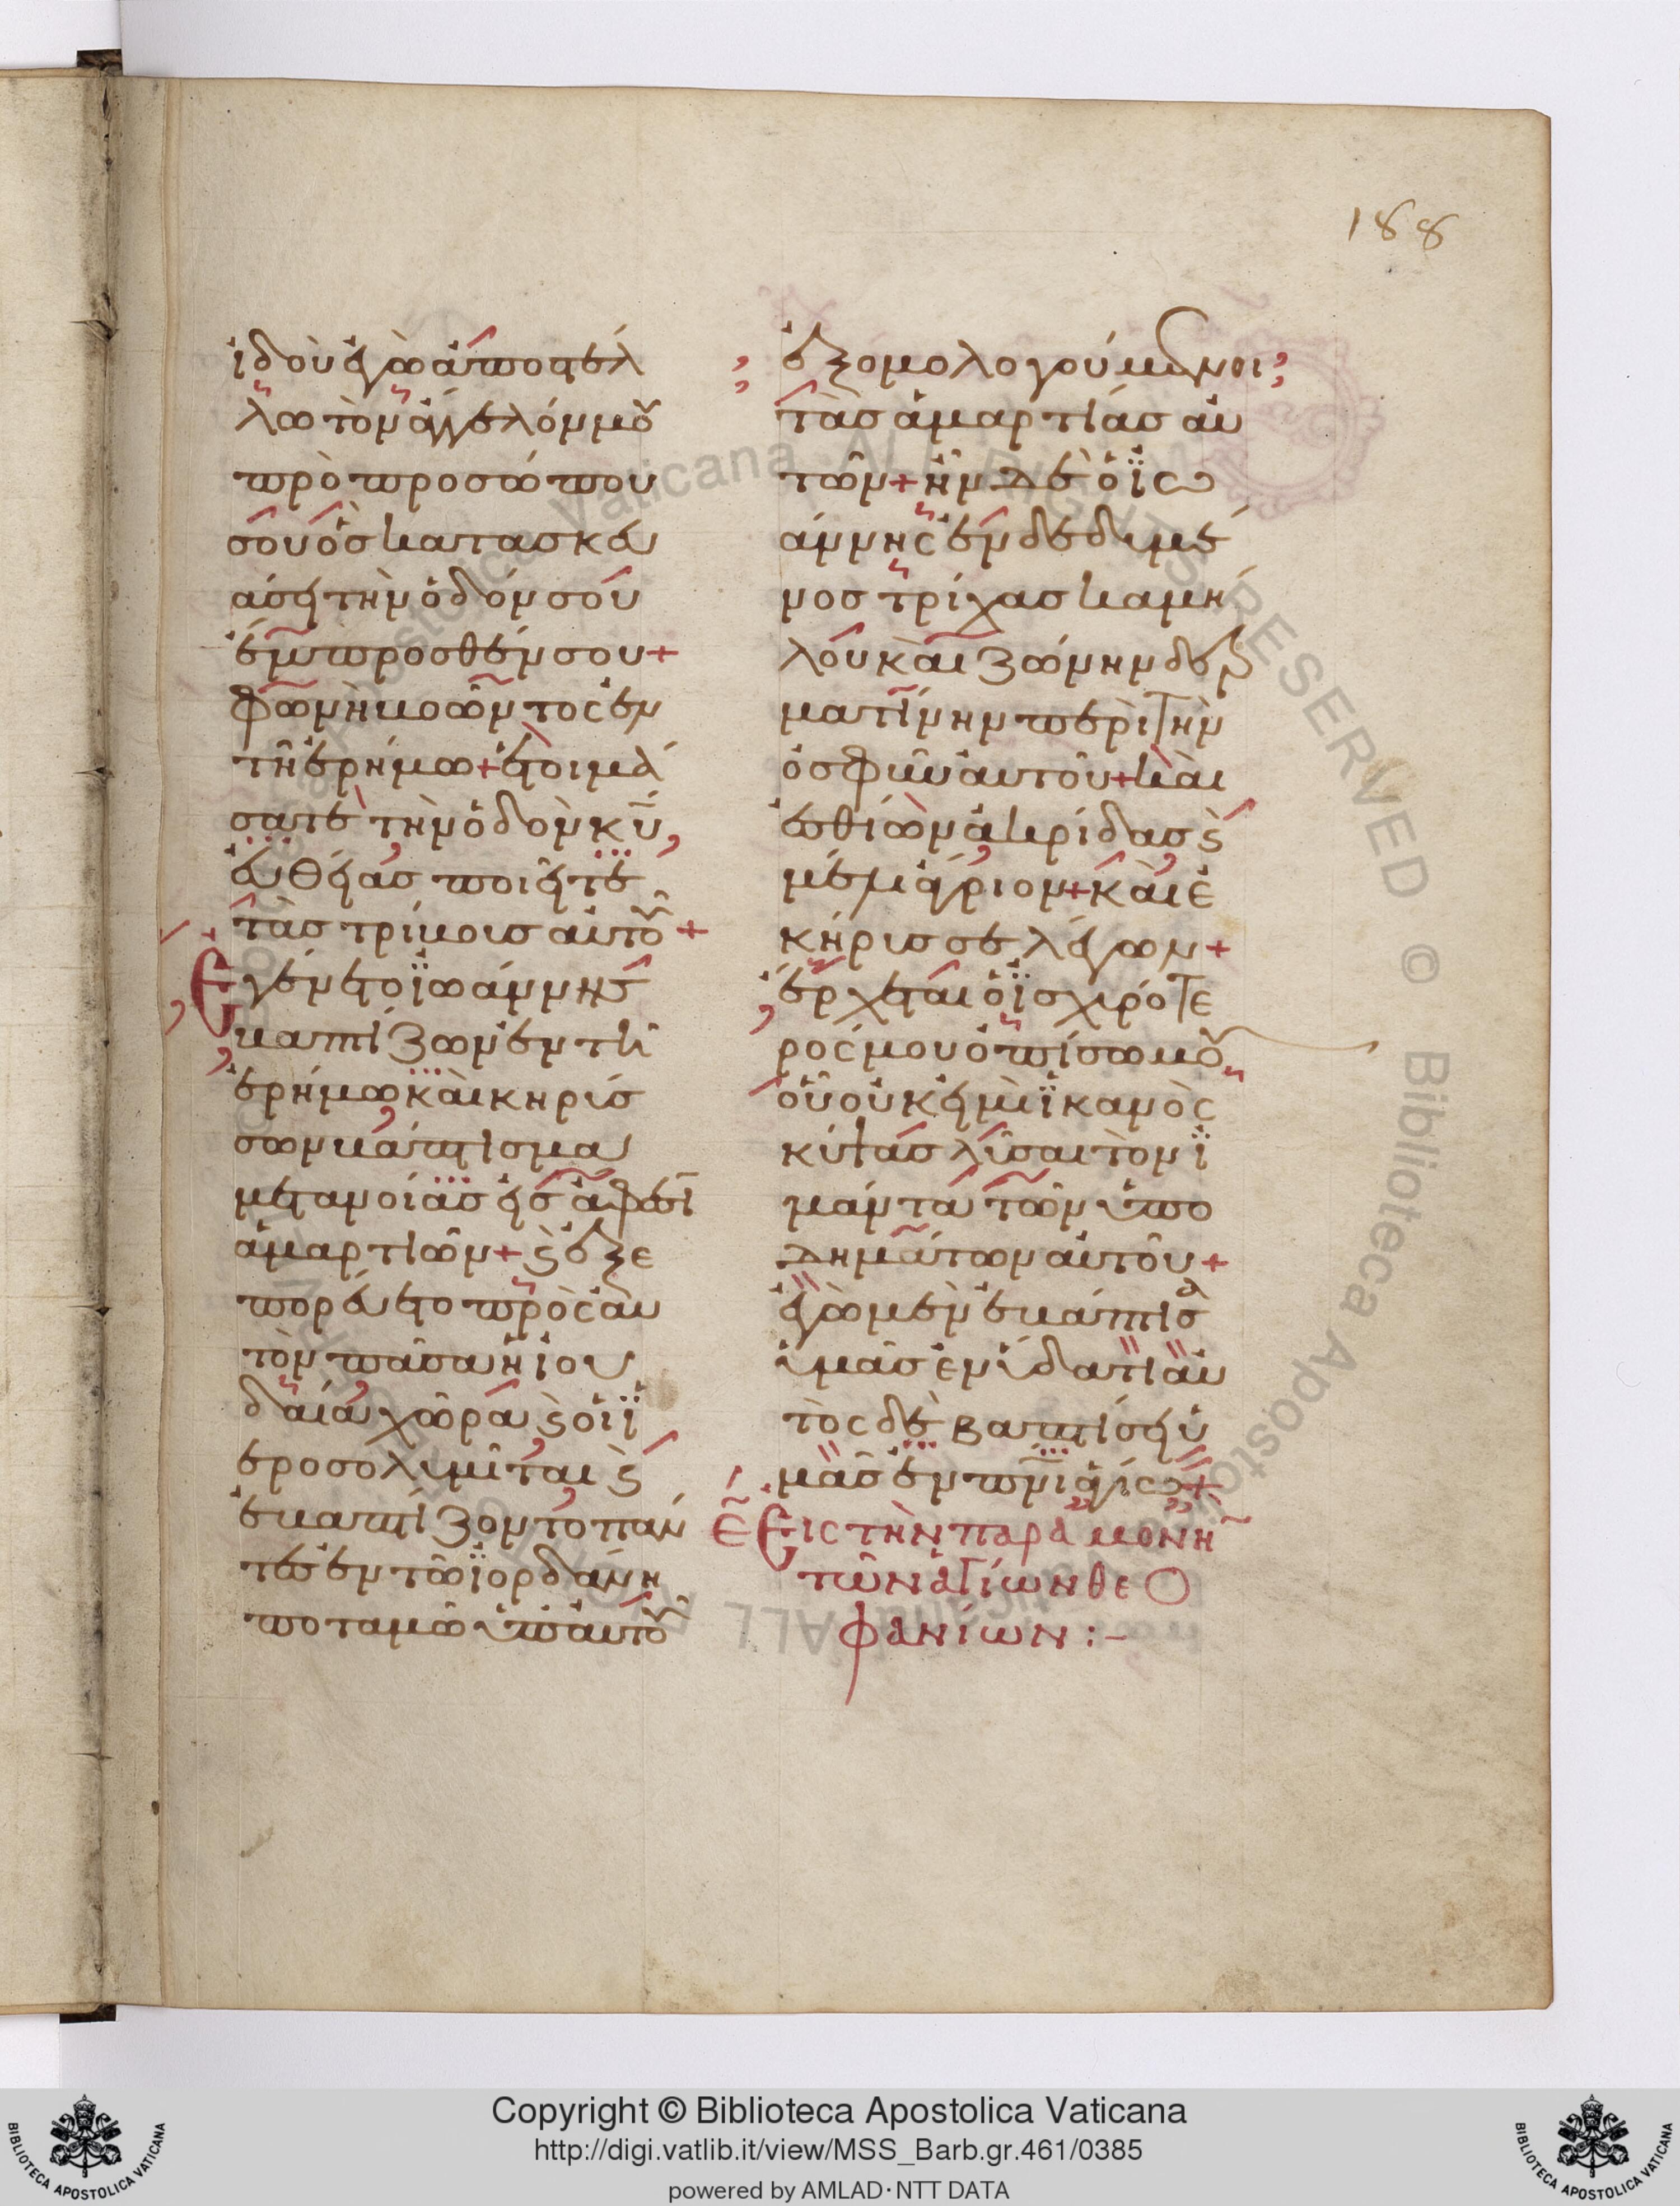 188
ἰδοὺ ἐγὼ ἀποστέλ
λω τὸν ἄγγελόν μου
πρὸ προσώπου
σου ὃς κατασκευ
άσει τὴν ὁδόν σου
ἔμπροσθέν σου +
φωνὴ βοῶντος ἐν
τῇ ἐρήμω + ἑτοιμά
σατε τὴν ὁδὸν κυ
ἐυθείας ποιεῖτε
τὰς τρίβους αὐτοῦ +
Εγένετο ϊωάννης
βαπτίζων ἐν τῇ
ἐρήμω καὶ κηρύσ
σων βάπτισμα
μετανοίας εἰς ἄφεσι
ἁμαρτιῶν + ϛ ἐξε
πορεύετο πρὸς ἀυ
τὸν πᾶσα ἡ ἰου
δαία χώρα ϛ οἱ ϊ
εροσολυμῖται ϛ
ἐβαπτίζοντο πάν
τες ἐν τῶ ϊορδάνη
ποταμῶ ὑπ᾽ ἀυτοῦ
ἐξομολογούμενοι
τὰς ἁμαρτίας αὐ
τῶν + ἦν δὲ ὁ ϊω
άννης ἐνδεδυμέ
νος τρίχας καμή
λου καὶ ζώνην δερ
ματίνην περὶ τὴν
ὀσφὺν ἀυτοῦ + καὶ
ἐσθίων ἀκρίδας ϛ
μέλι ἄγριον + καὶ ἐ
κήρυσσε λέγων +
ἔρχεται ὁ ϊσχυρότε
ρός μου ὀπίσω μου
οὗ οὐκ εἰμὶ ϊκανὸς
κύψας λῦσαι τὸν ϊ
μάντα τῶν ὑπο
δημάτων ἀυτοῦ +
ἐγὼ μὲν ἐβάπτισα
ὑμᾶς ἐν ὕδατι ἀυ
τὸς δὲ βαπτίσει ὑ
μᾶς ἐν πνι ἁγίω +
Εἰς τὴν παραμονὴ
τῶν ἁγίων θεο
φανίων :-
Copyright © Biblioteca Apostolica Vaticana
http://digi.vatlib.it/view/MSS_Barb.gr.461/0385
powered by AMLAD·NTT DATA
BIBLIOTECA APOSTOLICA VATICANA
BIBLIOTECA APOSTOLICA VATICANA